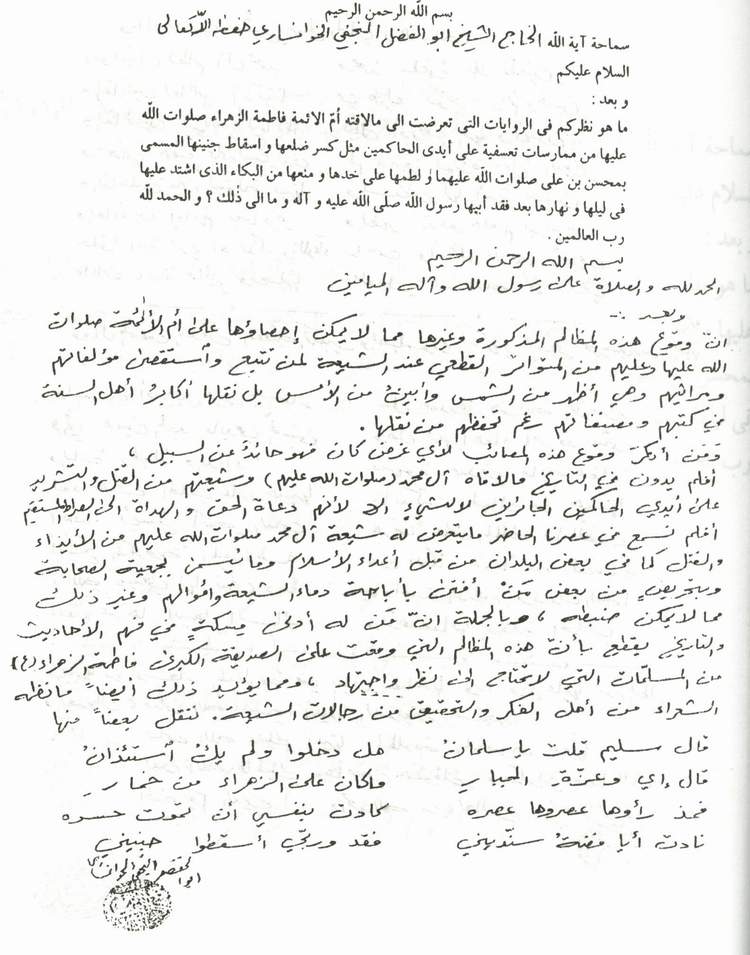 بسم الله الرحمن الرحيم
سماحة آية الله الحاج الشيخ ابو الفضل النجفي الخوانساري حفظه الله تعالى
السلام عليكم
و بعد :
ما هو نظركم فى الروايات التى تعرضت الى مالاقته أمّ الائمة فاطمة الزهراء صلوات اللّه
عليها من ممارسات تعسفية على أيدى الحاكمين مثل كسر ضلعها و اسقاط جنينها المسمى
بمحسن بن على صلوات اللّه عليهما و لطمها على خدها و منعها من البكاء الذى اشتد عليها
فى ليلها و نهارها بعد فقد أبيها رسول اللّه صلّى اللّه عليه و آله و ما الى ذلك ؟ و الحمد للّه
رب العالمين .
بسم الله الرحمن الرحيم
الحمد لله والصلاة على رسول الله وآله الميامين
وبعد :-
انّ وقوع هذه المظالم المذكورة وغيرها مما لا يمكن إحصاؤها على أم الأئمة صلوات
الله عليها وعليهم من المتواتر القطعي عند الشيعة لمن تتبع وأستقصى مؤلفاتهم
ومراثيهم وهي أظهر من الشمس وأبين من الأمس بل نقلها أكابر أهل السنة
في كتبهم ومصنفاتهم رغم تحفظهم من نقلها .
ومَن أنكر وقوع هذه المصائب لأي غرض كان فهو حائد عن السبيل ،
أفلم يدون في التاريخ مالاقاه آل محمد (صلوات الله عليهم) وشيعتهم من القتل والتشريد
على أيدي الحاكمين الجائرين لا لشيء إلا لأنهم دعاة الحق والهداة الى الصراط المستقيم
أفلم نسمع في عصرنا الحاضر ما يتعرض له شيعة آل محمد صلوات الله عليهم من الأيذاء
والقتل كما في بعض البلدان من قبل أعداء الأسلام وما يسمى بجمعية الصحابة
وبتحريض من بعض مَنْ أفتى بأباحة دماء الشيعة وأموالهم وغير ذلك
مما لا يمكن ضبطه ، وبالجملة انّ مَن له أدنى مسكة في فهم الأحاديث
والتاريخ يقطع بأنّ هذه المظالم التي وقعت على الصديقة الكبرى فاطمة الزهراء (ع)
من المسلّمات التي لا تحتاج الى نظر واجتهاد ، ومما يؤيد ذلك أيضاً ما نظمه
الشعراء من أهل الفكر والتحقيق من رجالات الشيعة. ننقل بعضاً منها
قال سليم قلت يا سلمانُ هل دخلوا ولم يك أستئذانُ
قال إي وعزّةِ الجبارِ ما كان على الزهراء من خمارِ
فمذ رأوها عصروها عصره كادت بنفسي أن تموت حسره
نادت أيا فضةُ سنّديني فقد وربّي أسقطوا جنيني
ابو الفضل النجفي الخوانساري